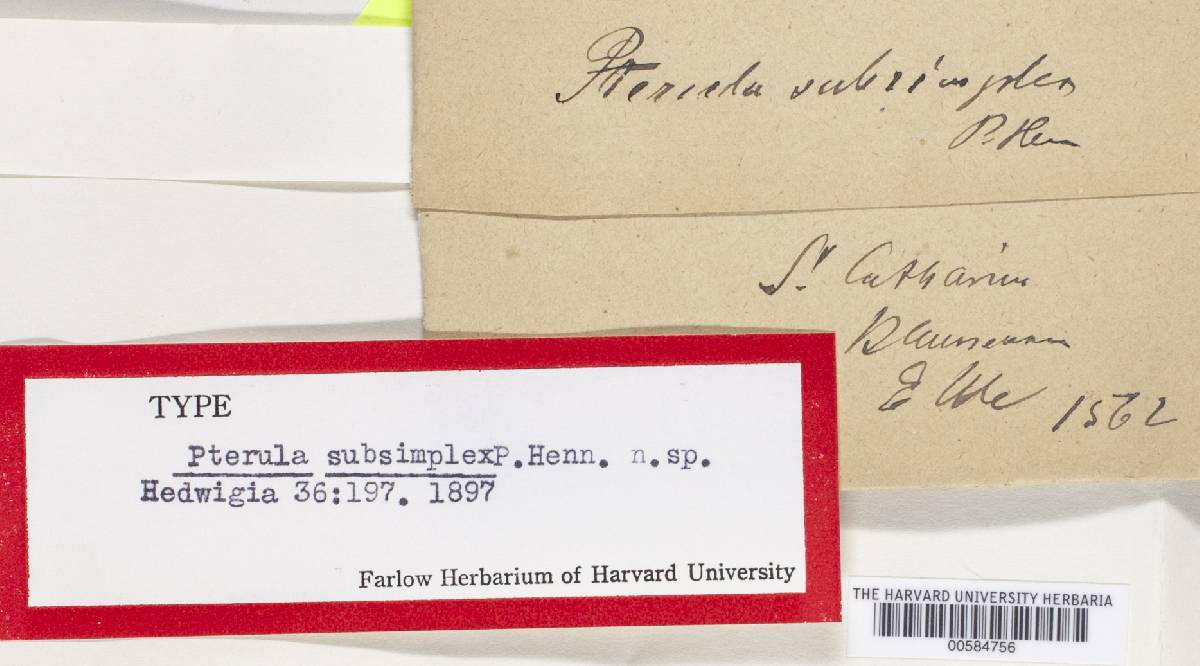 Pterula subsimplex
P. Henn
St Catharina
Blumenau
E Ule 1562
TYPE
Pterula subsimplexP.Henn. n.sp.
Hedwigia 36:197. 1897
Farlow Herbarium of Harvard University
THE HARVARD UNIVERSITY HERBARIA
00584756